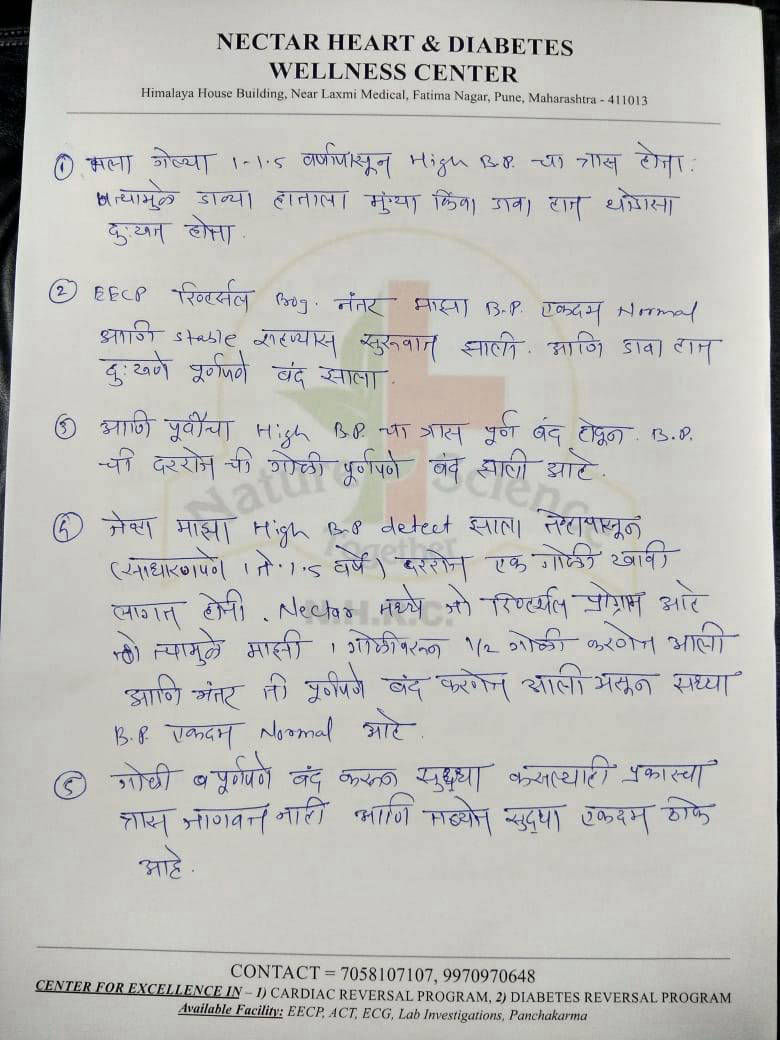 NECTAR HEART & DIABETES
WELLNESS CENTER
Himalaya House Building, Near Laxmi Medical, Fatima Nagar, Pune, Maharashtra - 411013
① मला गेल्या 1-1.5 वर्षापासून High B.P. चा त्रास होता.
त्यामुळे डाव्या हाताला मुंग्या किंवा डावा हात थोडासा
दु:खत होता.
② EECP रिव्हर्सल Prog. नंतर माझा B.P. एकदम Normal
आणि stable राहण्यास सुरुवात झाली. आणि डावा हात
दु:खणे पूर्णपणे बंद झाला.
③ आणि पूर्वीचा High B.P. चा त्रास पूर्ण बंद होवून. B.P.
ची दररोज ची गोळी पूर्णपणे बंद झाली आहे.
④ जेव्हा माझा High B.P detect झाला तेव्हापासून
(साधारणपणे 1 ते 1.5 वर्षे) दररोज एक गोळी खावी
लागत होती. Nectar मध्ये जो रिव्हर्सल प्रोग्राम आहे
त्यामुळे माझी 1 गोळीवरून 1/2 गोळी करणेत आली
आणि नंतर ती पूर्णपणे बंद करणेत आली असून सध्या
B.P. एकदम Normal आहे.
⑤ गोळी पूर्णपणे बंद करून सुध्धा कसल्याही प्रकारचा
त्रास जाणवत नाही आणि सुद्धा एकदम ठीक
आहे.
Nature Science
Together
N.H.K.C.
CONTACT = 7058107107, 9970970648
CENTER FOR EXCELLENCE IN – 1) CARDIAC REVERSAL PROGRAM, 2) DIABETES REVERSAL PROGRAM
Available Facility: EECP, ACT, ECG, Lab Investigations, Panchakarma